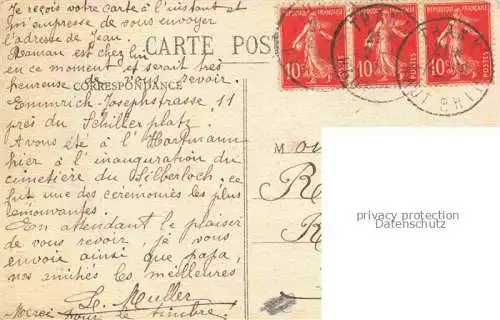 Je reçois votre carte à l'instant et
m'empresse de vous envoyer
l'adresse de Jean.
Maman est chez lui
en ce moment et serait très
heureuse de vous revoir.
Emmrich-Josephstrasse 11
près du Schiller platz.
Avons été à l'Hartmann
hier à l'inauguration du
cimetière du Silberloch. ce
fut une des cérémonies les plus
émouvantes.
En attendant le plaisir
de vous revoir, je vous
envoie ainsi que papa,
nos amitiés les meilleures
L. Muller
Merci pour le timbre.
CARTE POS
CORRESPONDANCE
REPUBLIQUE FRANÇAISE
10c
POSTES
REPUBLIQUE FRANÇAISE
10c
POSTES
REPUBLIQUE FRANÇAISE
10c
POSTES
M
privacy protection
Datenschutz